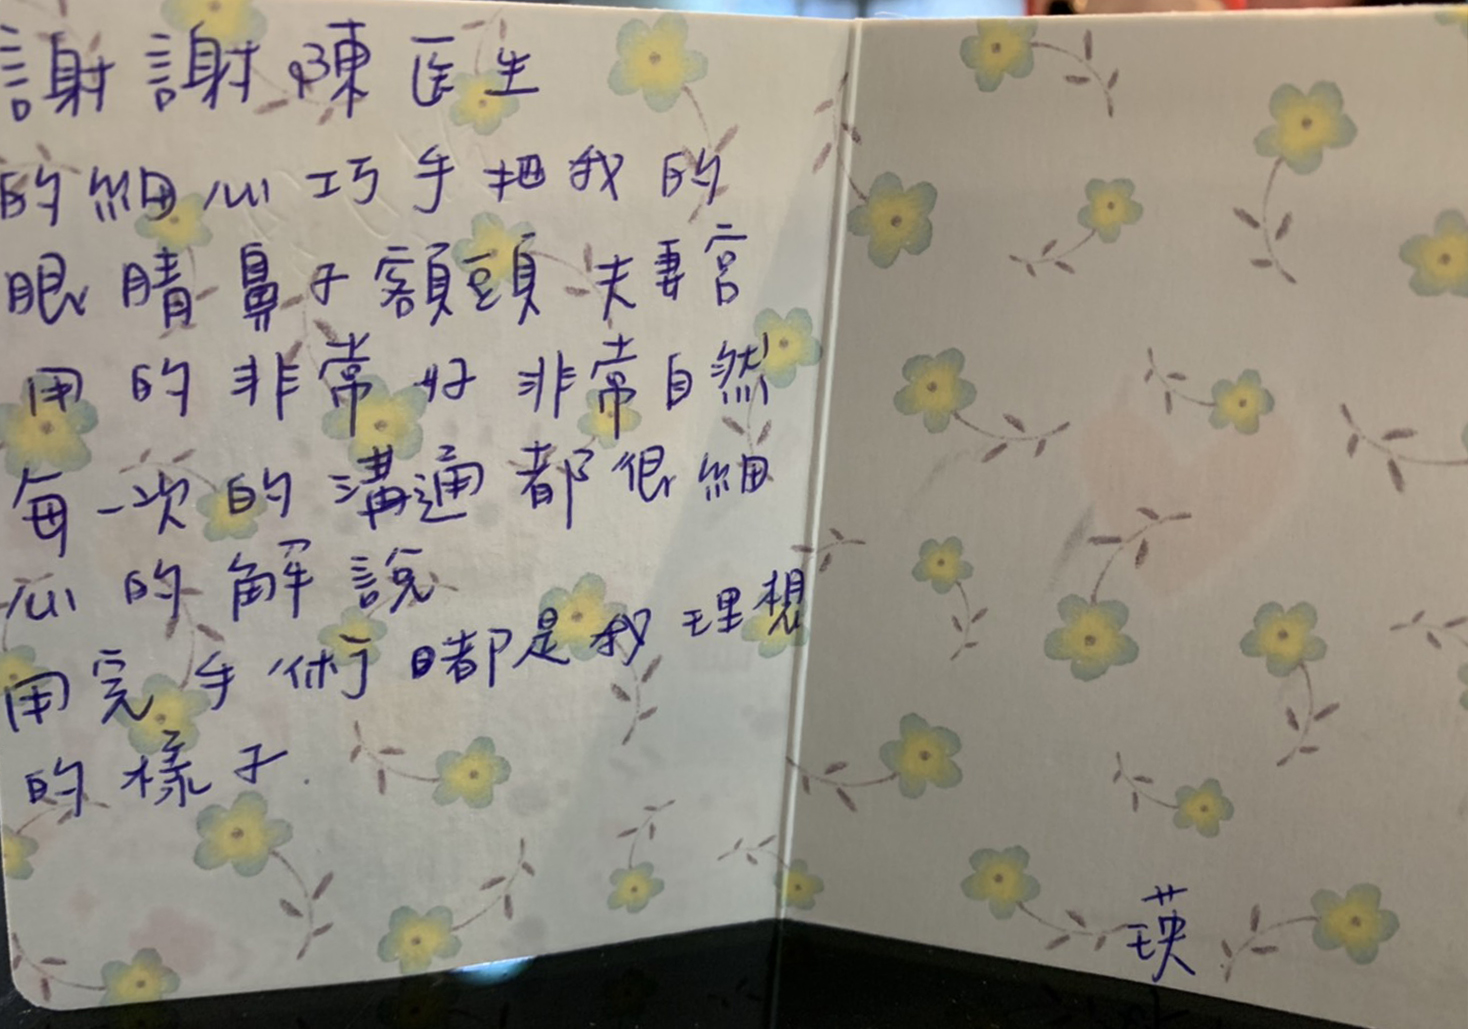 謝謝陳医生
的細心巧手把我的
眼睛鼻子額頭夫妻宮
用的非常好非常自然
每一次的溝通都很細
心的解說
用完手術都是我理想
的樣子.
瑛